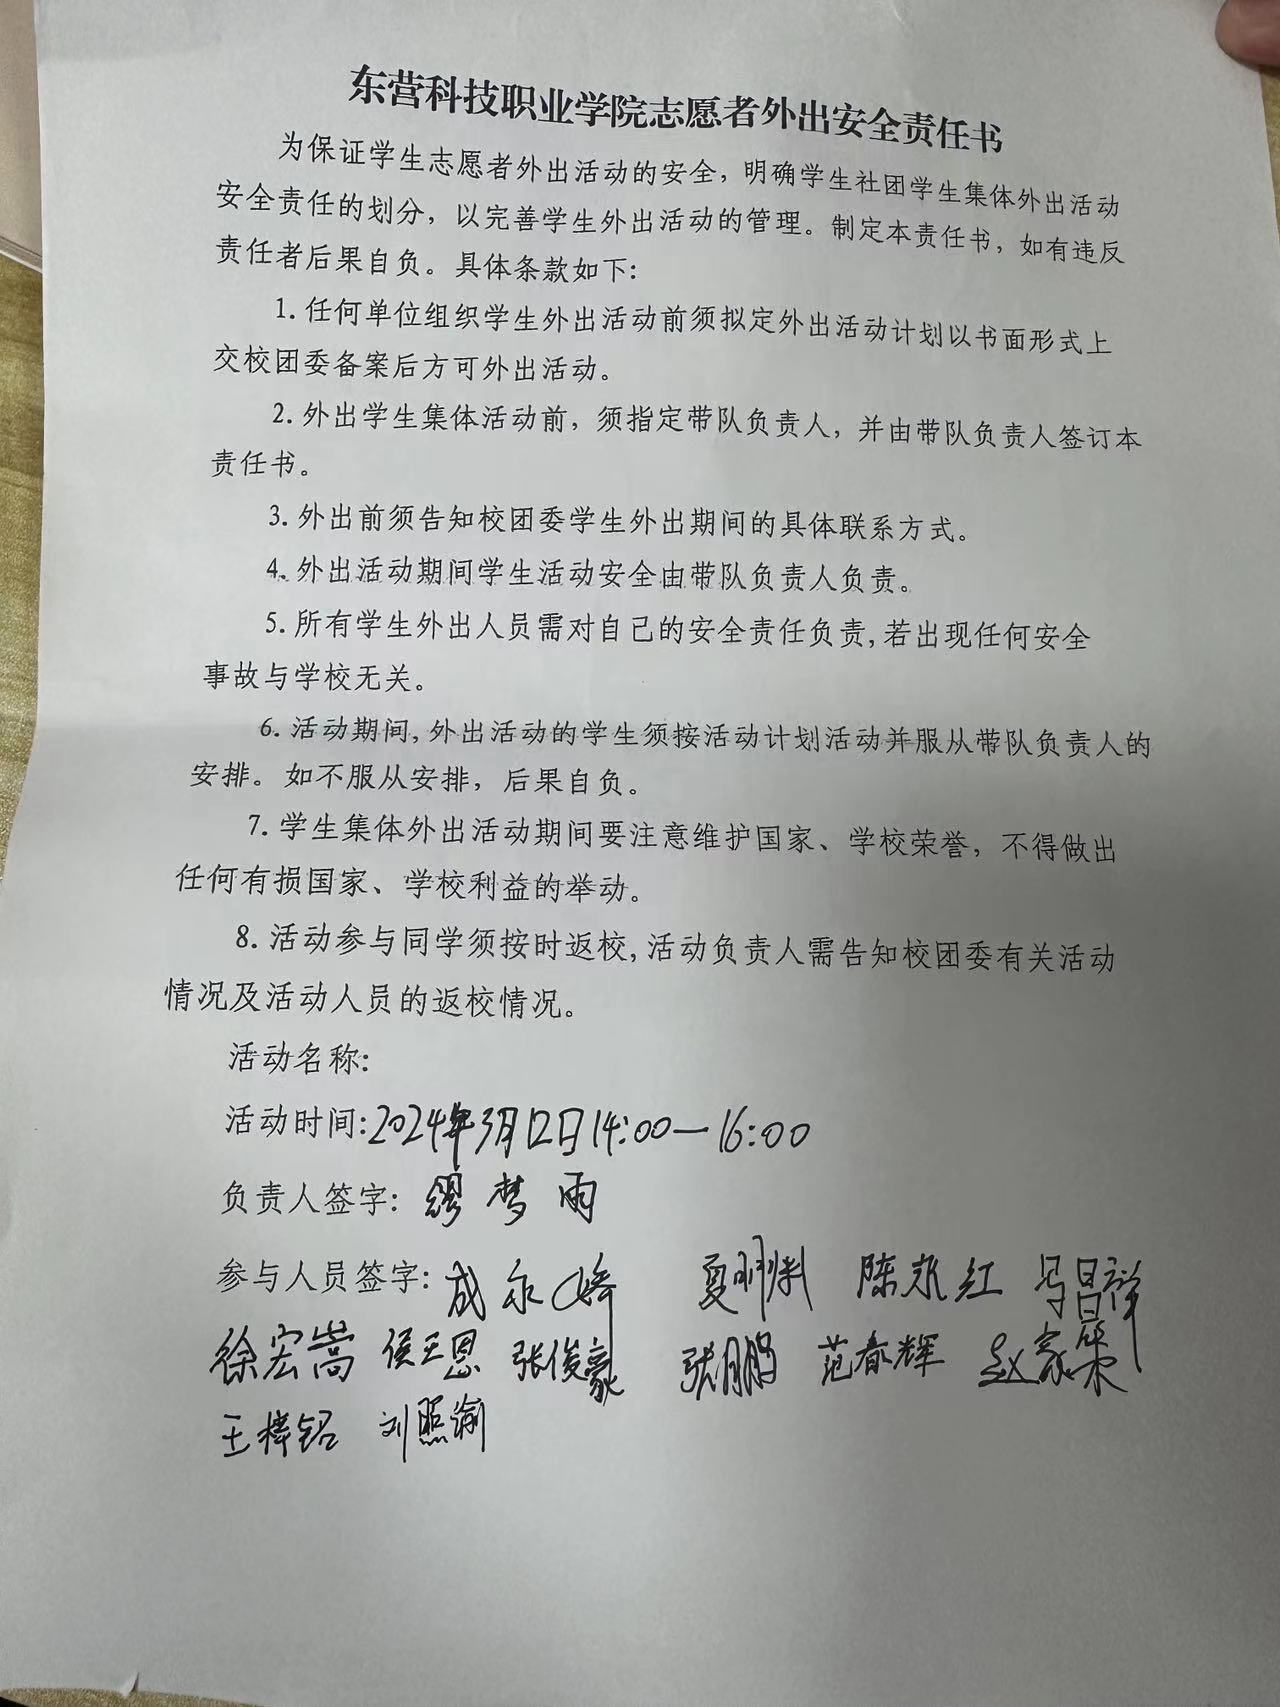 东营科技职业学院志愿者外出安全责任书
为保证学生志愿者外出活动的安全，明确学生社团学生集体外出活动
安全责任的划分，以完善学生外出活动的管理。制定本责任书，如有违反
责任者后果自负。具体条款如下：
1. 任何单位组织学生外出活动前须拟定外出活动计划以书面形式上
交校团委备案后方可外出活动。
2. 外出学生集体活动前，须指定带队负责人，并由带队负责人签订本
责任书。
3. 外出前须告知校团委学生外出期间的具体联系方式。
4. 外出活动期间学生活动安全由带队负责人负责。
5. 所有学生外出人员需对自己的安全责任负责，若出现任何安全
事故与学校无关。
6. 活动期间，外出活动的学生须按活动计划活动并服从带队负责人的
安排。如不服从安排，后果自负。
7. 学生集体外出活动期间要注意维护国家、学校荣誉，不得做出
任何有损国家、学校利益的举动。
8. 活动参与同学须按时返校，活动负责人需告知校团委有关活动
情况及活动人员的返校情况。
活动名称：
活动时间：2024年3月12日14:00—16:00
负责人签字：缪梦雨
参与人员签字：成永婷 陈永红 马昌祥
徐宏嵩 侯天恩 张俊豪 张鹏 范春辉 赵家荣
王梓铭 刘照渝